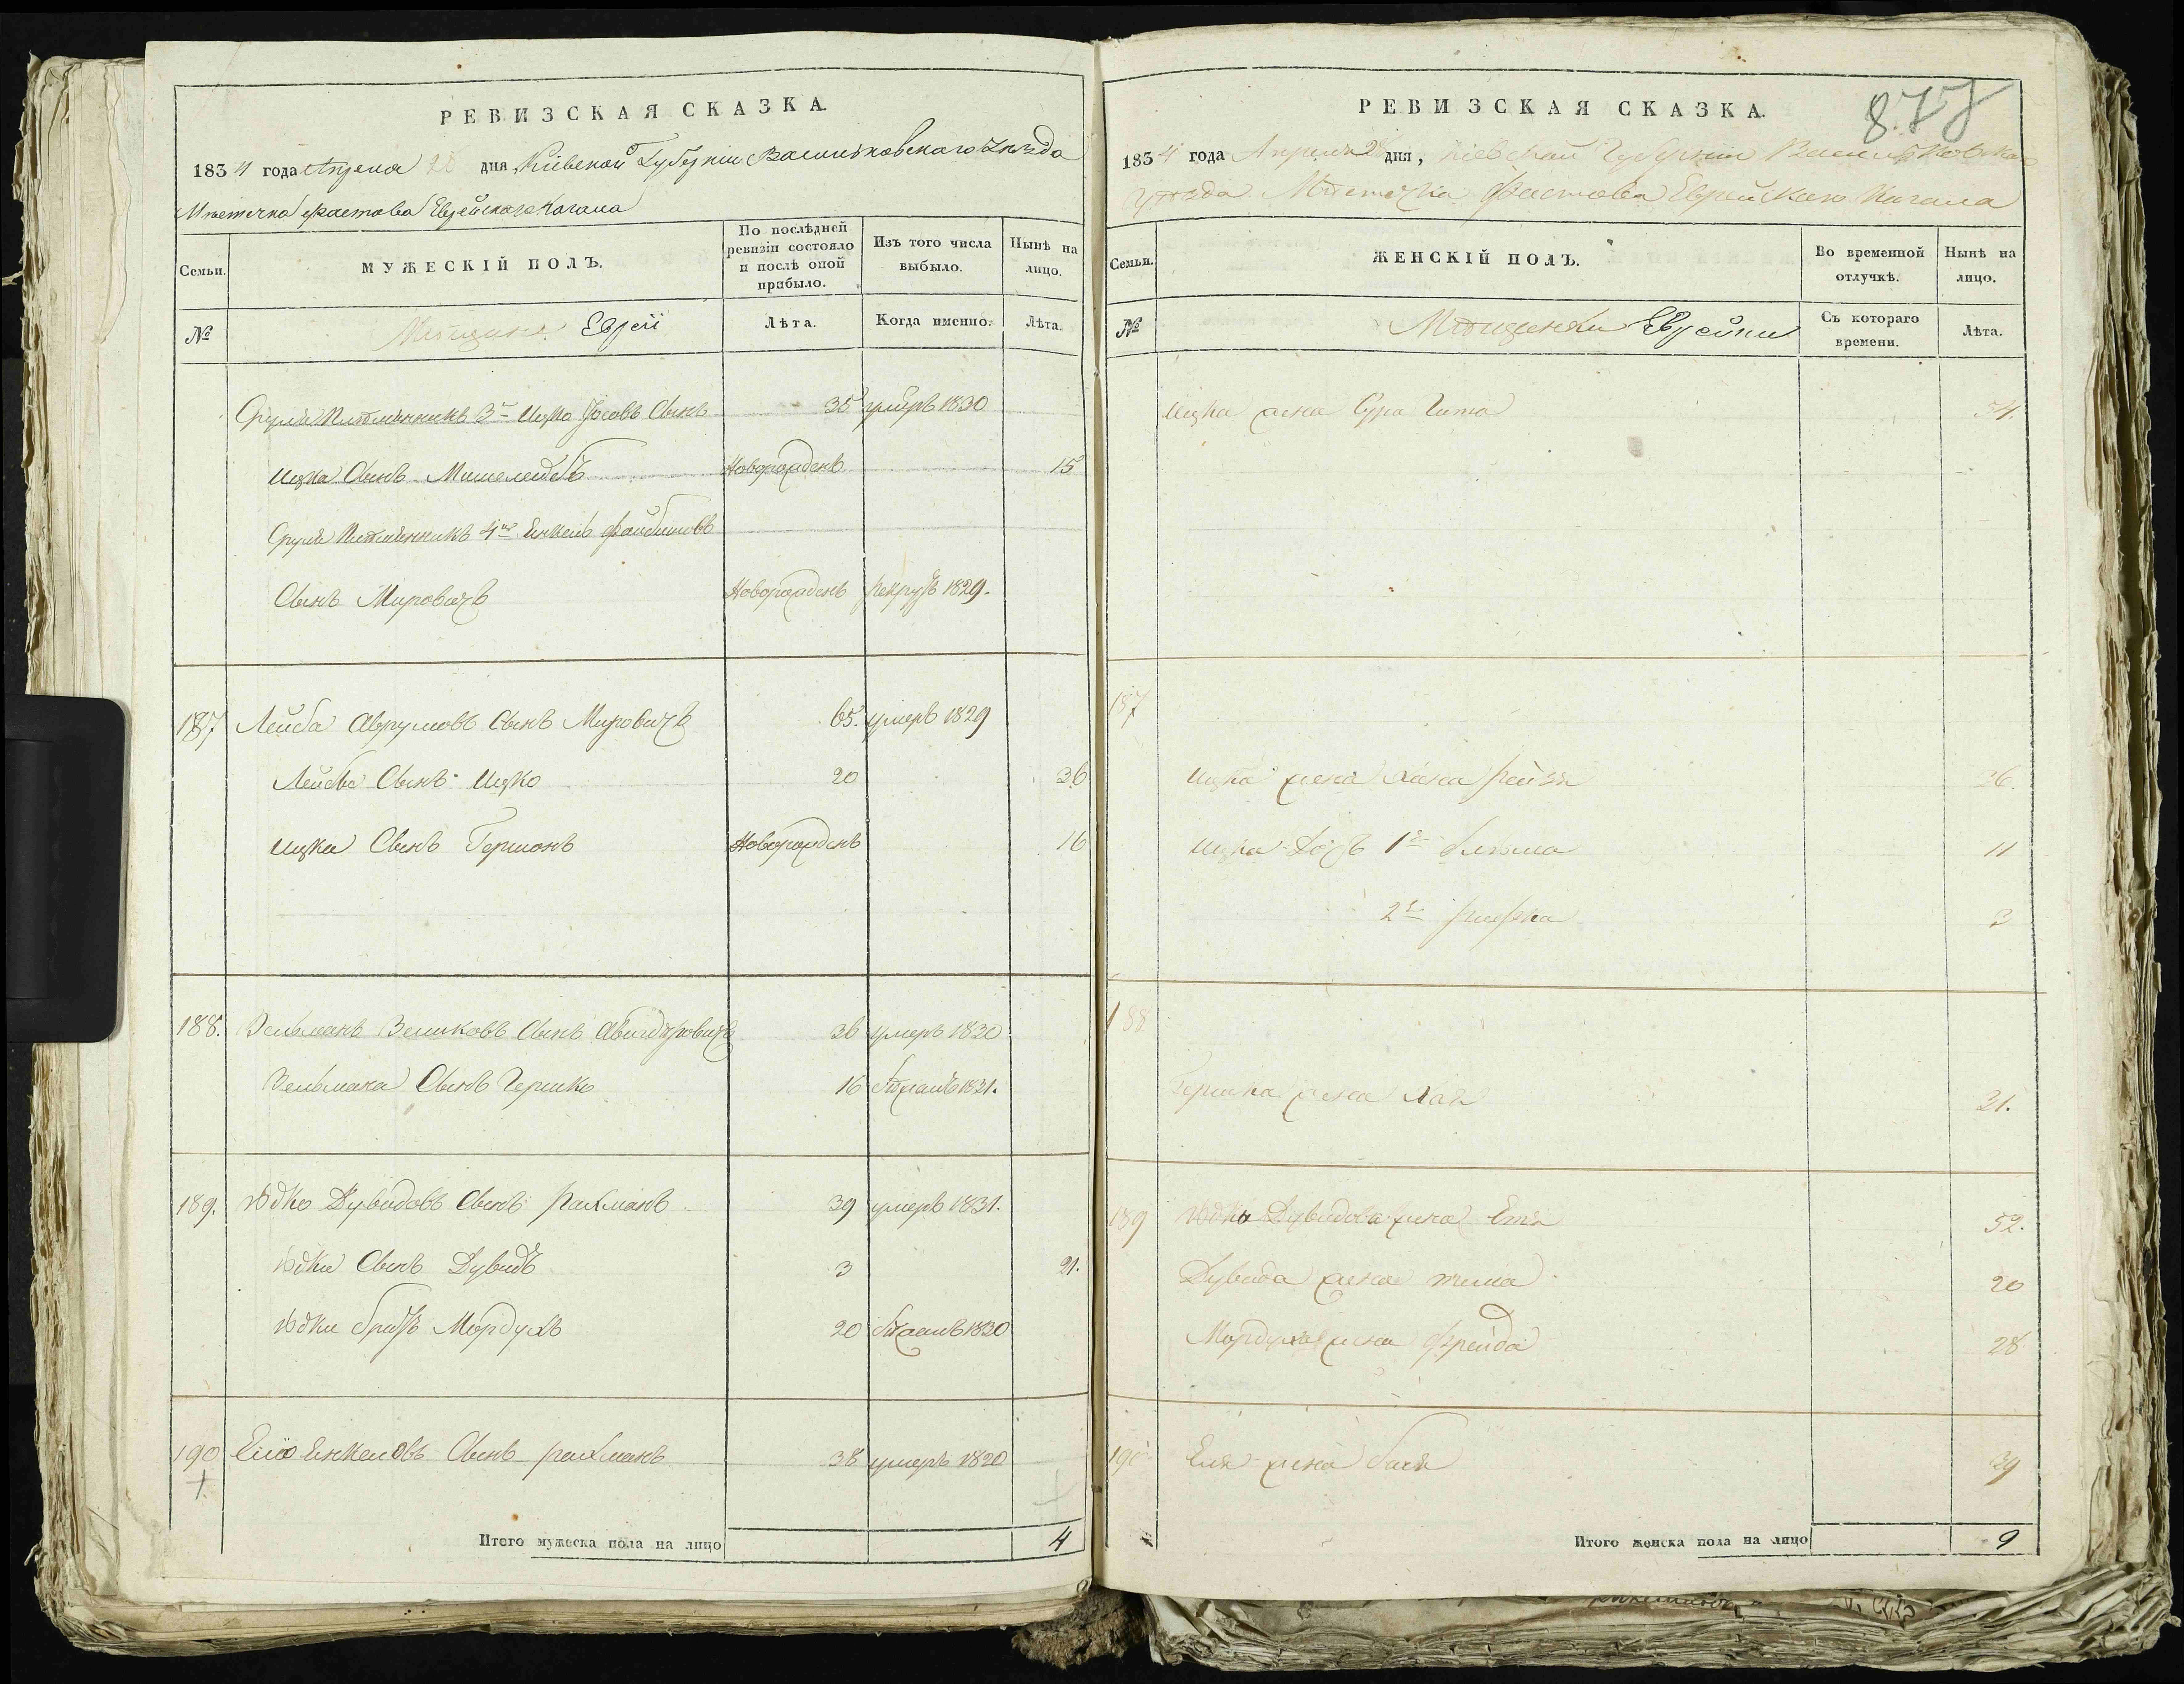 РЕВИЗСКАЯ СКАЗКА.
1834 года Апреля 28 дня, Кіевской Губерніи Васильковскаго Уѣзда
Мѣстечка Фастова Еврейскаго Кагала
Семьи.
МУЖЕСКІЙ ПОЛЪ.
По послѣдней ревизіи состояло и послѣ оной прибыло.
Изъ того числа выбыло.
Нынѣ на лицо.
№
Мѣщане Евреи
Лѣта.
Когда именно.
Лѣта.
Сруля Племянникъ 3й Ицко Іосовъ Сынъ 35 умеръ 1830
Ицка Сынъ Новорожденъ 15
Сруля Племянникъ 4й Янкель
Сынъ Мировичъ Новорожденъ рекрутъ 1829.
187 Лейба Аврумовъ Сынъ Мировичъ 65. умеръ 1829
Лейбы Сынъ Ицко 20 36
Ицка Сынъ Гершонъ Новорожденъ 16
188. Зельманъ Сынъ 36 умеръ 1830
Зельмана Сынъ Гершко 16 1831.
189. Юдко Дувидовъ Сынъ Рахманъ 39 умеръ 1831.
Юдки Сынъ Дувидъ 3 21.
Юдки братъ Мордухъ 20 1830
190 Еліо Янкелевъ Сынъ Рахманъ 38 умеръ 1820
Итого мужеска пола на лицо 4
877
РЕВИЗСКАЯ СКАЗКА.
1834 года Апреля 28 дня, Кіевской Губерніи Васильковскаго
Уѣзда Мѣстечка Фастова Еврейскаго Кагала
Семьи.
ЖЕНСКІЙ ПОЛЪ.
Во временной отлучкѣ.
Нынѣ на лицо.
№
Мѣщанки Еврейки
Съ котораго времени.
Лѣта.
Ицка жена Сура Гита
187
Ицка жена Хана Рейзя 36.
Ицка Дочь 1я 11
2я Рифка
188
Гершка жена Хая 21.
189 Юдка Дувидова жена Етя 52.
Дувида жена 20
Мордуха жена Фрейда 28
190 Еля жена Бася 39
Итого женска пола на лицо 9